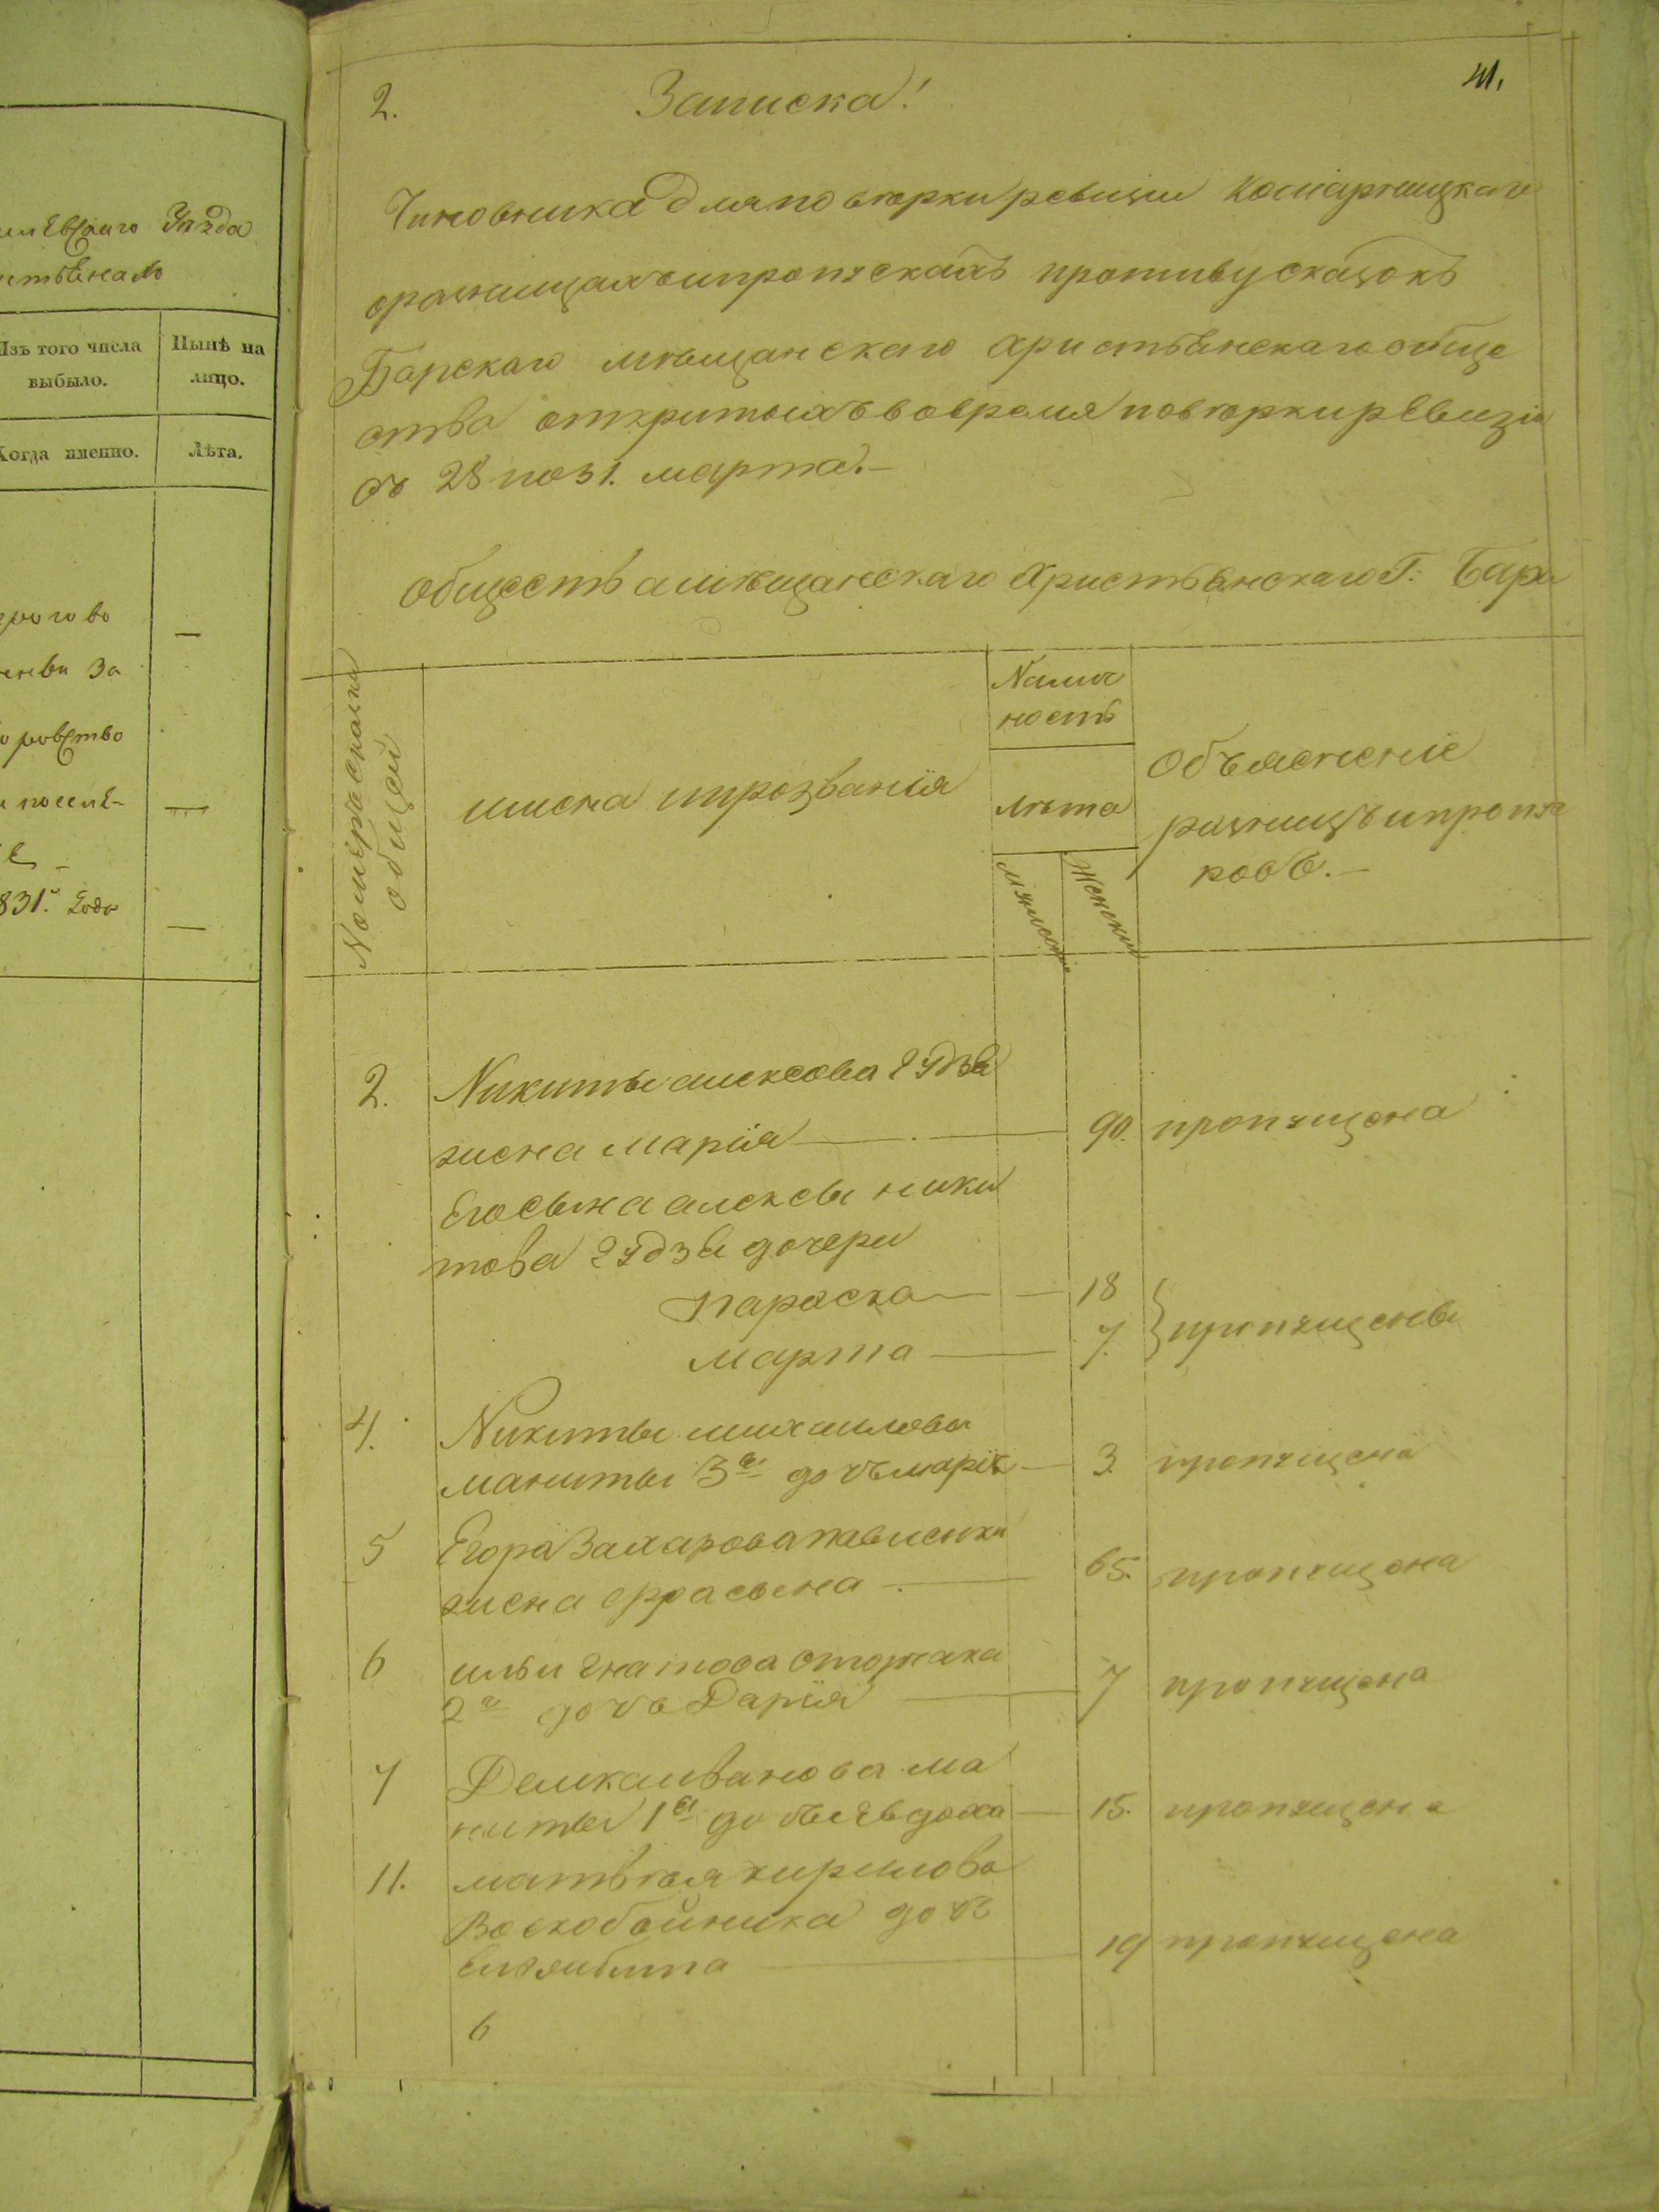 уѣзда
Изъ того числа выбыло.
Нынѣ на лицо.
Когда именно.
Лѣта.
за
831. года
2.
Записка!
41.
Чиновника для повѣрки ревизіи Комарницкаго
о разницахъ и пропускахъ противу сказокъ
Барскаго мѣщанскаго христьянскаго обще
ства открытыхъ во время повѣрки ревизіи
съ 28 по 31. марта.—
Общества мѣщанскаго христьянскаго г. Бара
Номера сказки общей
имена и прозванія
Налич
ность
лѣта
мужеска
женскаго
Объясненіе
разницъ и пропус
ковъ.—
2. Никиты алексова Гудзя
жена Марія — 90. пропущена
Его сына алексы ники
това Гудзя дочери
Параска — 18
Марта — 7. } пропущены
4. Никиты михаилова
маниты 3я дочь марія — 3. пропущена
5 Егора Захарова
жена ефросына — 65. пропущена
6 ильи гнатова
2я дочь Дарія — 7 пропущена
7 Демка иванова ма
ниты 1я дочь явдоха — 15. пропущена
11. матвѣя кирилова
Воскобойника дочь
елизавита — 19 пропущена
6